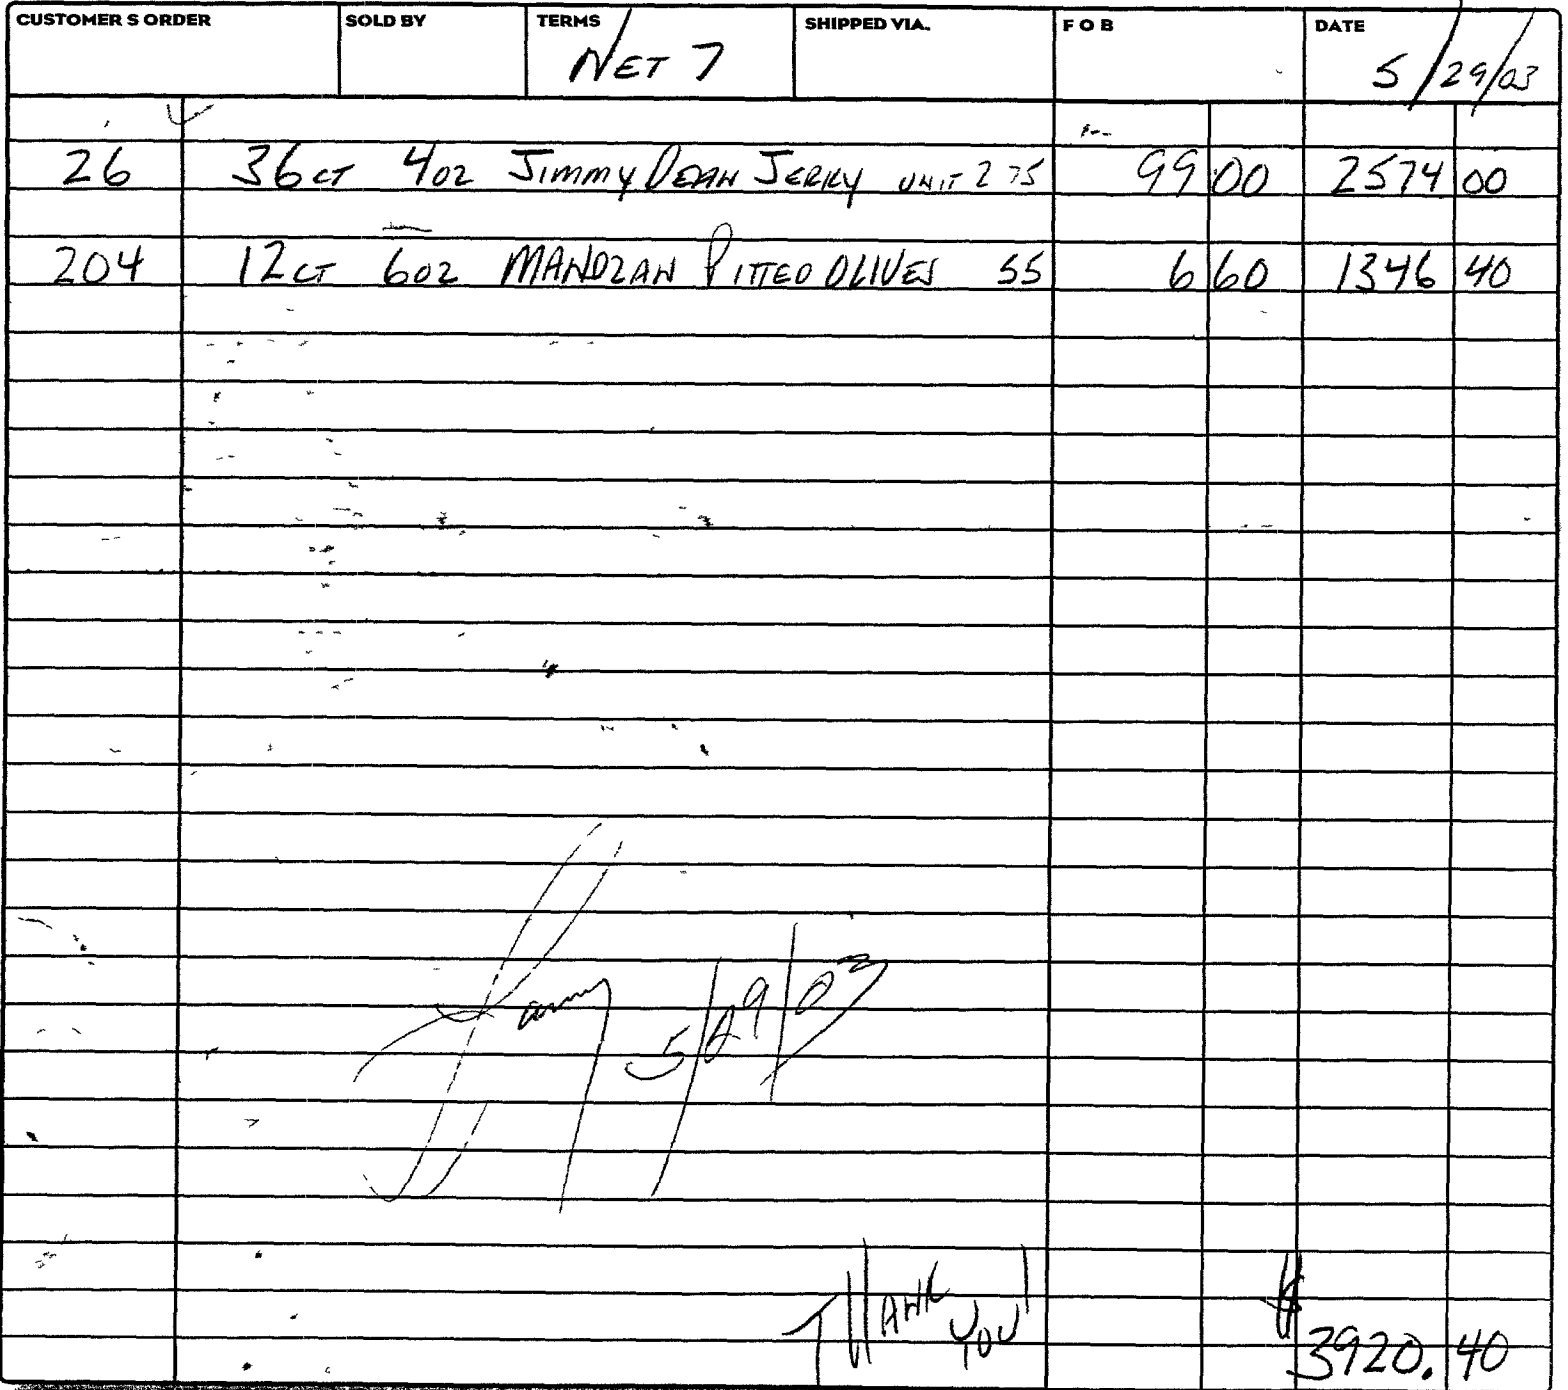 CUSTOMER S ORDER SOLD BY TERMS SHIPPED VIA. F O B DATE
NET 7 5/29/03
26 36 CT 4OZ JIMMY DEAN JERKY UNIT 2 75 99 00 2574 00
204 12 CT 6OZ MANDZAN PITTED OLIVES 55 6 60 1346 40
5/29/03
THANK YOU! $
3920.40